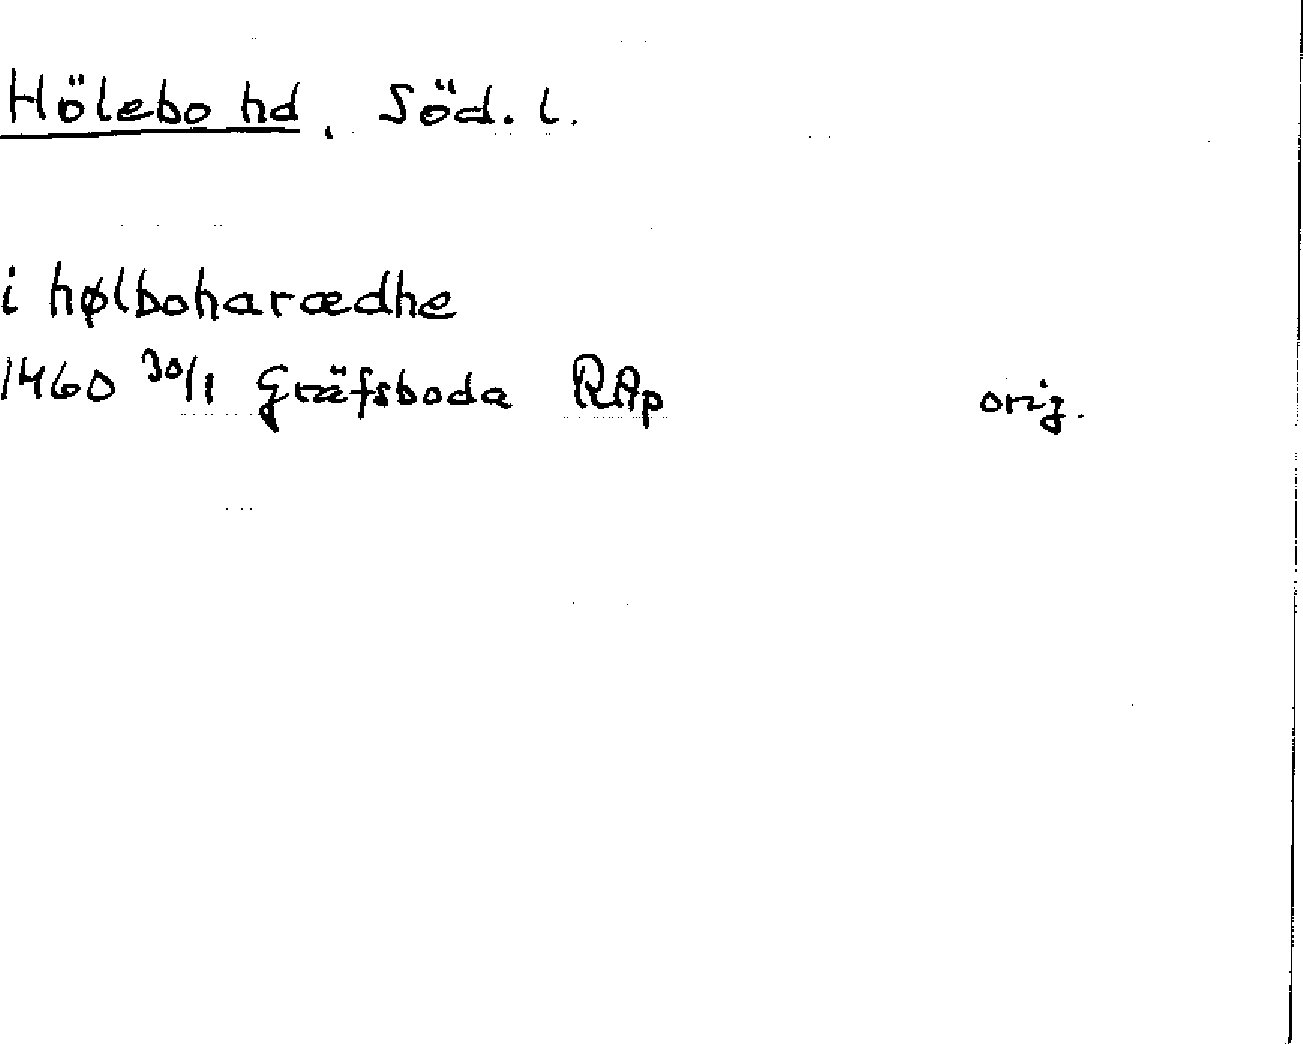 Hölebo hd, Söd. l.
i hølboharædhe
1460 30/1 Gräfsboda RAp orig.